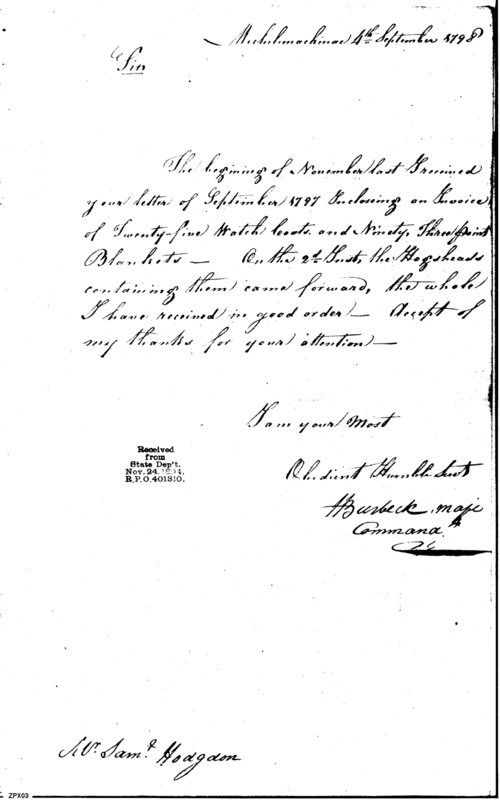 Michilimackinac 4th September 1798
Sir
The begining of November last I received
your letter of September 1797 Inclosing an Invoice
of Twenty-five Watch Coats and Ninety, Three point
Blankets — On the 2d Inst, the Hogsheads
containing them came forward, the whole
I have received in good order — Accept of
my thanks for your attention —
I am your Most
Obedient Humble Servt
HBurbeck Maje
Commandt
Received
from
State Dep't.
Nov. 24. 1904.
R.P.O.401310.
Mr Saml Hodgdon
ZPX03